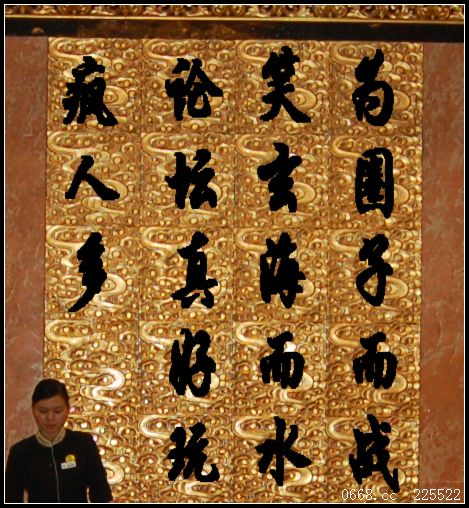 为子而战
笑玄而水
论坛真好玩
疯人多
0668.cc 225522